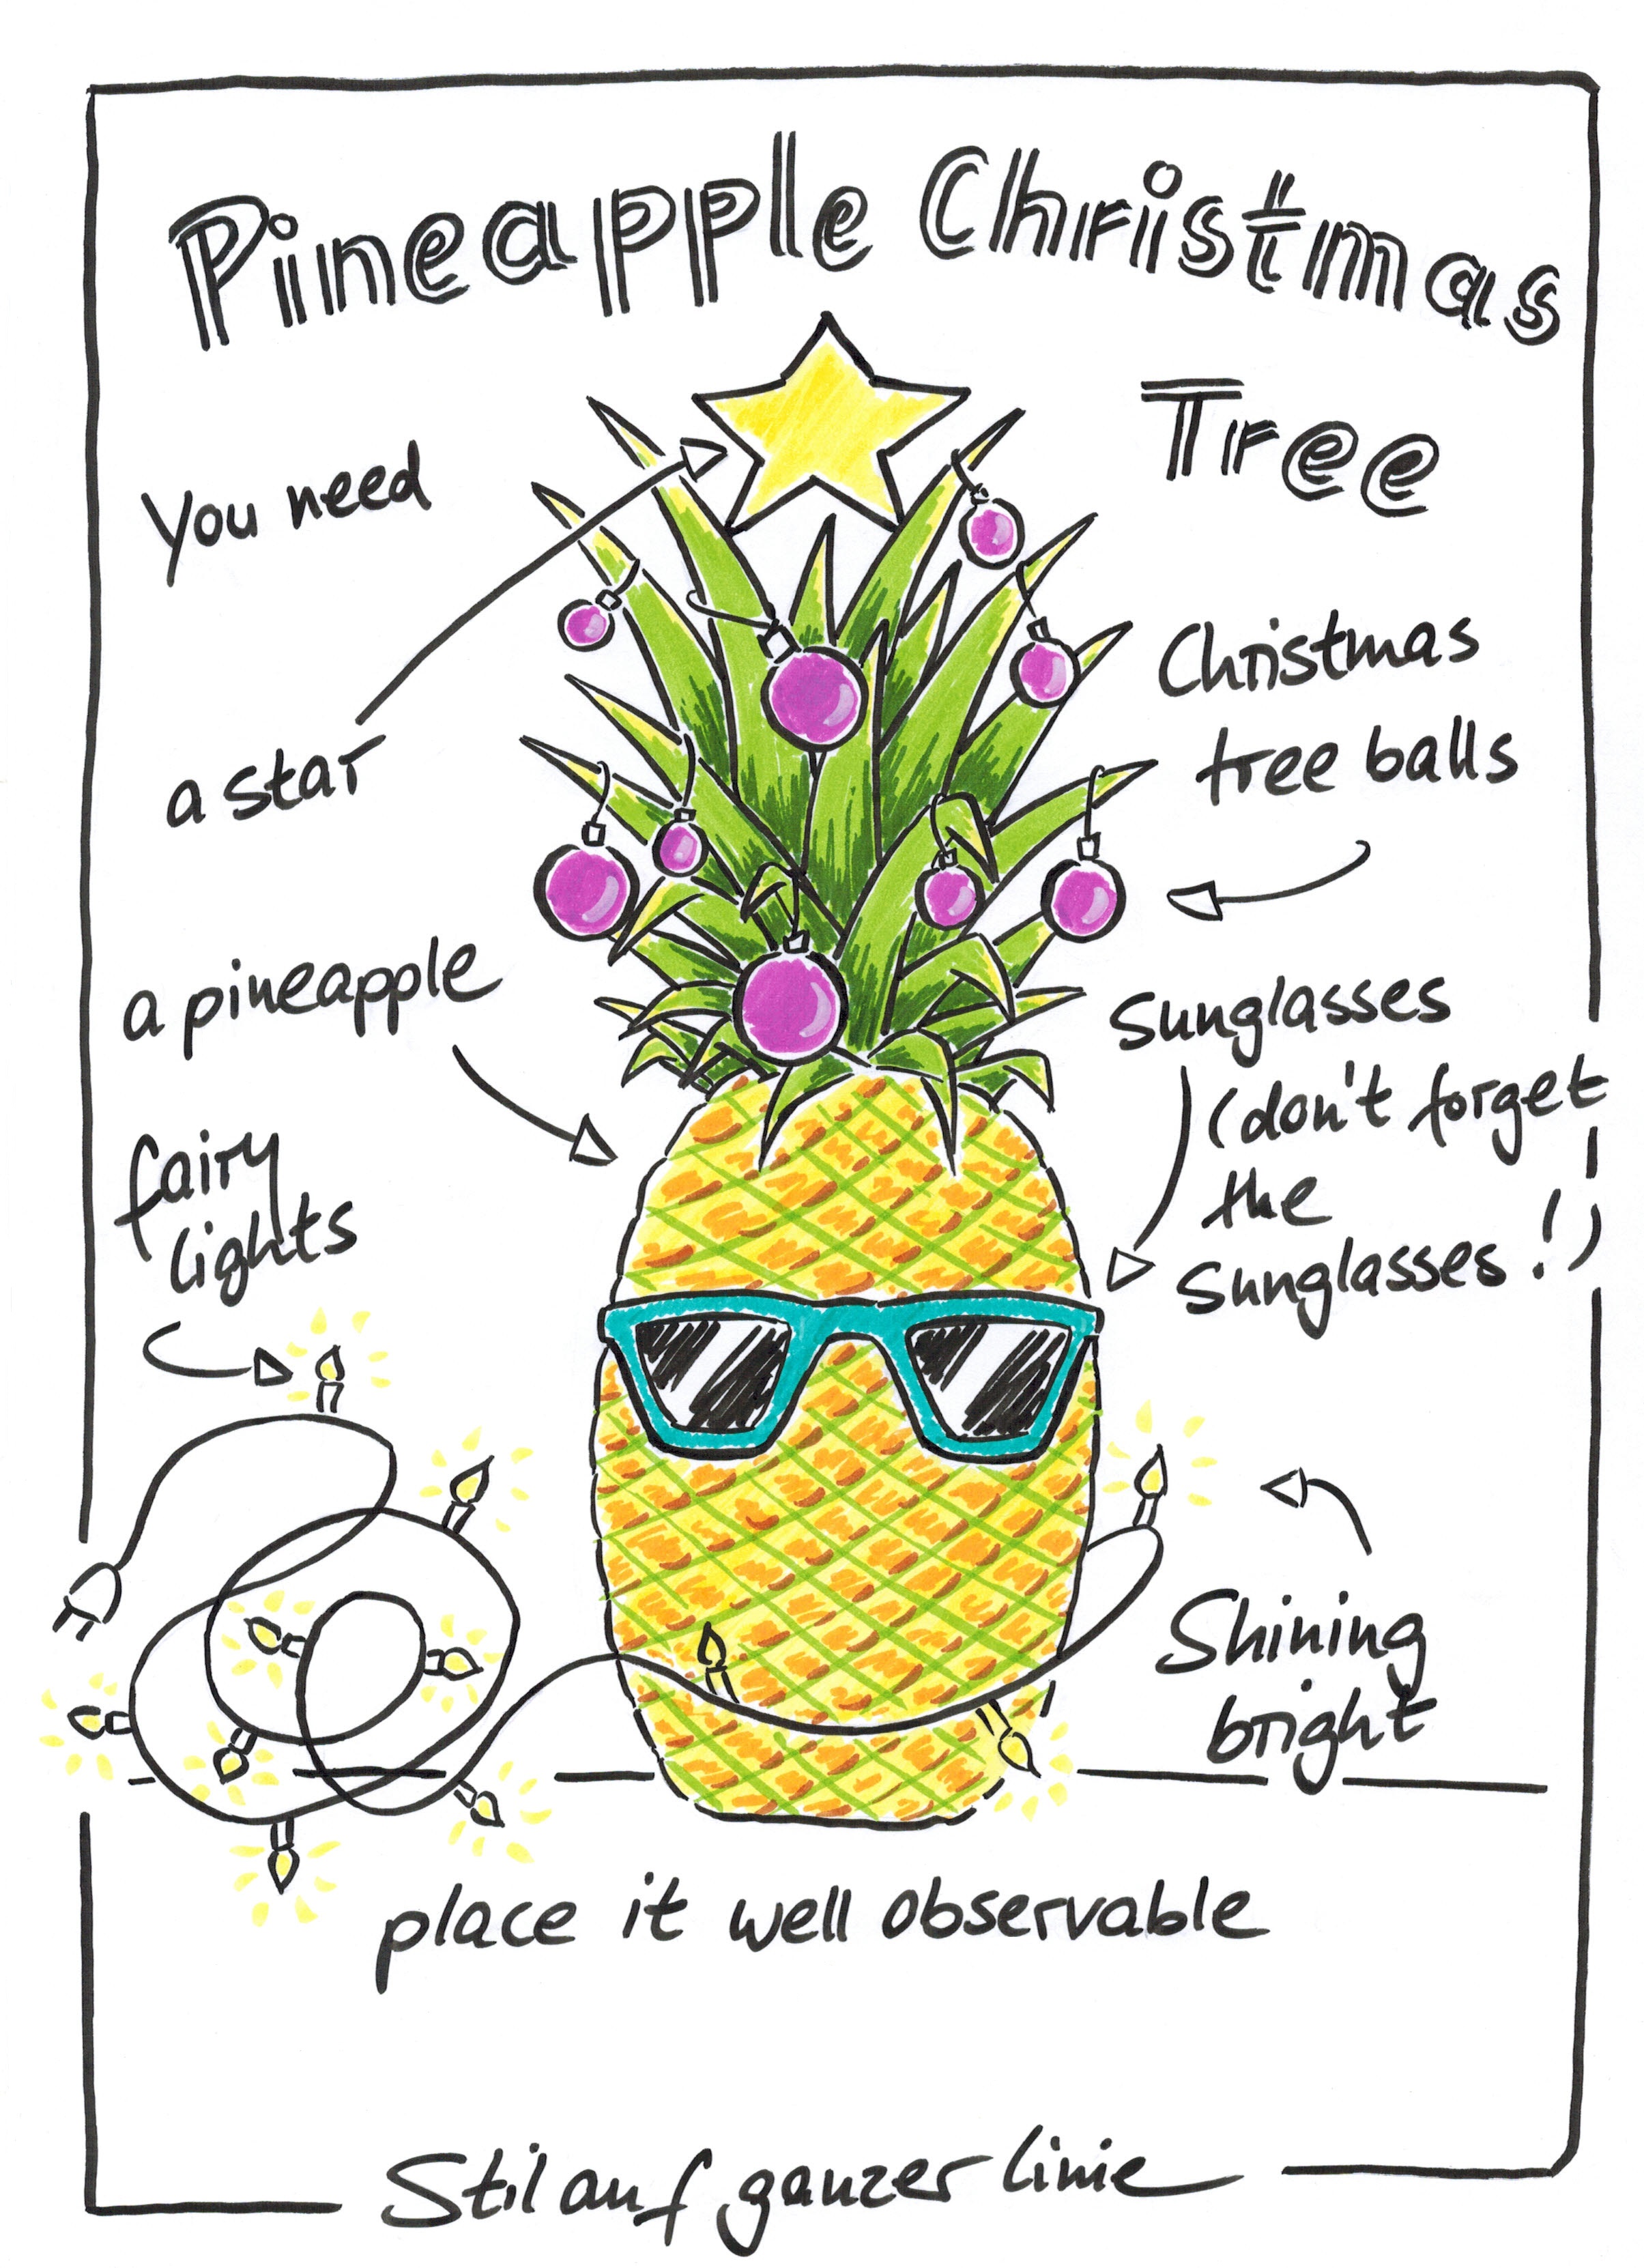 Pineapple Christmas
Tree
You need
a star
Christmas
tree balls
a pineapple
Sunglasses
(don't forget
the
Sunglasses!)
fairy
lights
Shining
bright
place it well observable
Stil auf ganzer Linie